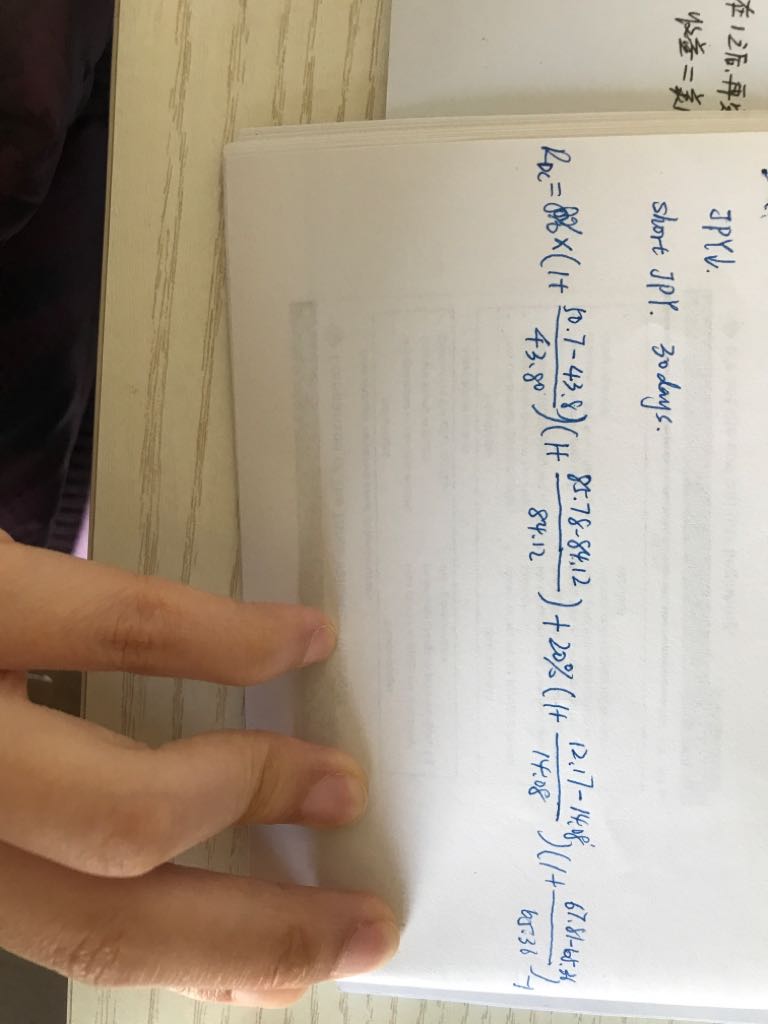 在1之后,再
= 
JPY↓.
short JPY. 30days.
R_DC = 80% × (1+ (50.7-43.8)/43.80)(1+ (85.78-84.12)/84.12) + 20% (1+ (12.17-14.08)/14.08)(1+ (67.81-65.36)/65.36) -1